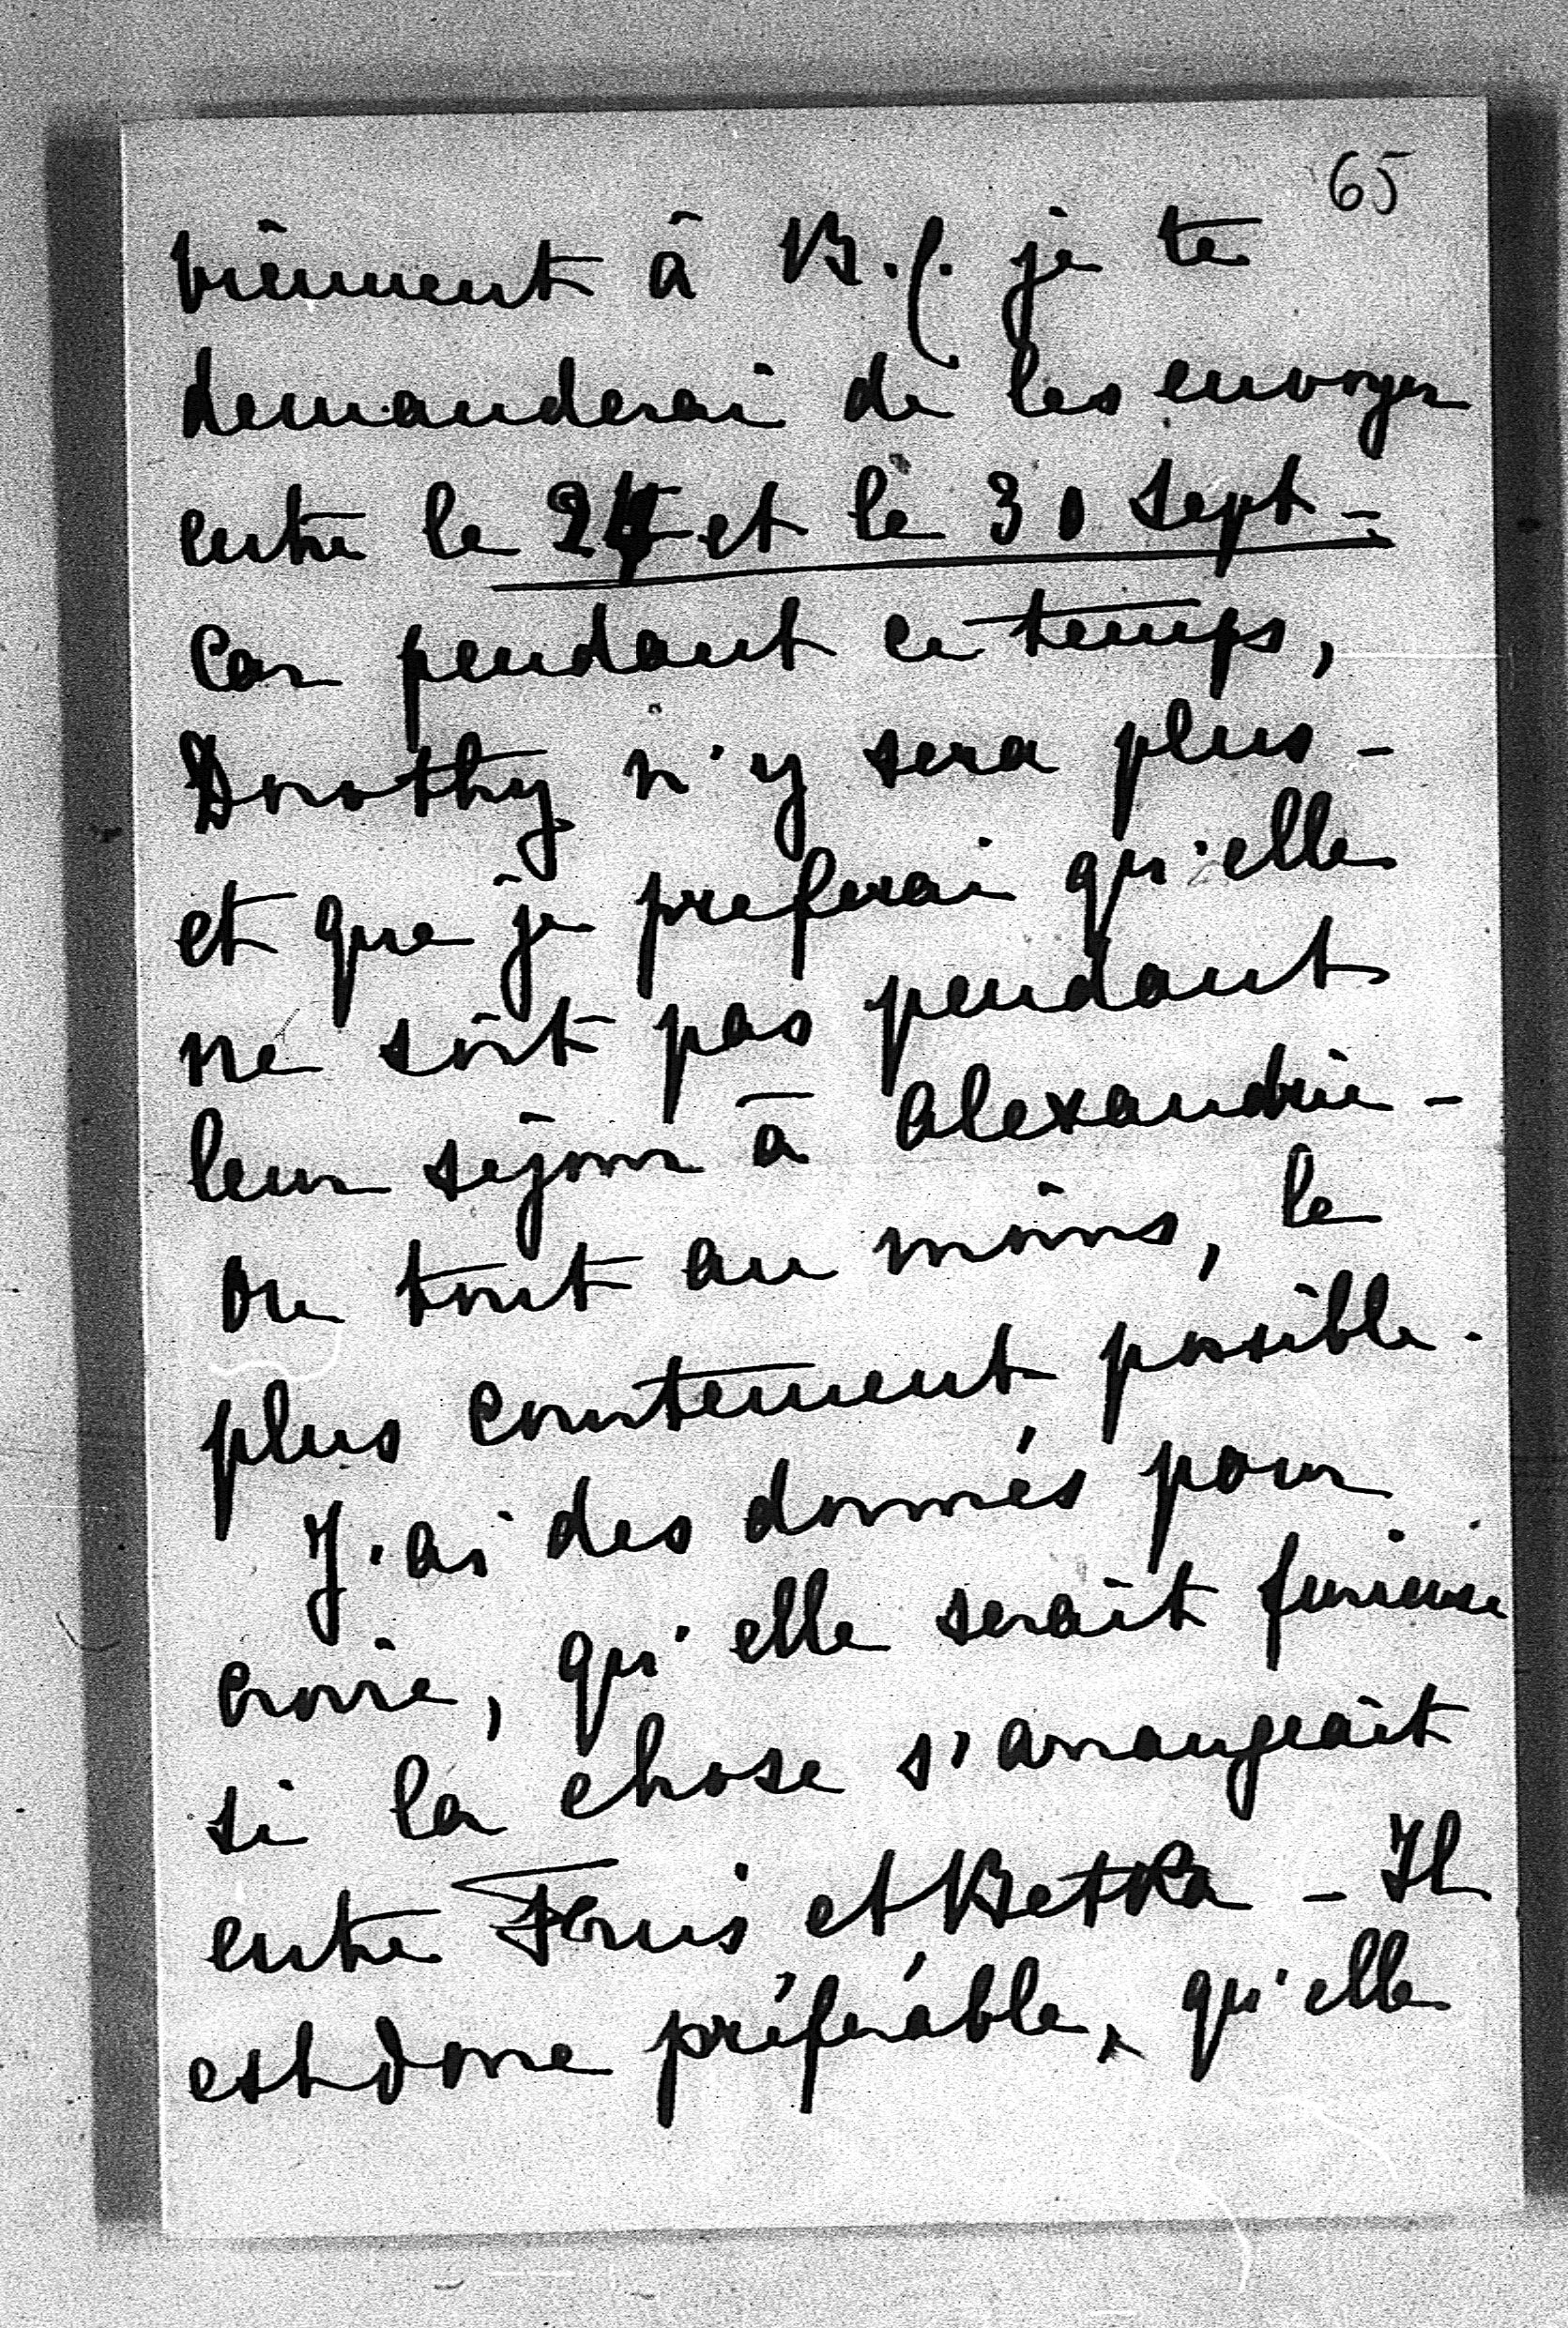 65
viennent à B.(. je te
demanderai de les envoyer
entre le 24 et le 30 sept -
Car pendant ce temps,
Dorothy n'y sera plus -
et que je preferai qu'elle
ne soit pas pendant
leur séjour à Alexandrie -
ou tout au moins, le
plus courtement possible.
J'ai des donnés pour
croire, qu'elle serait furieuse
si la chose s'arrangeait
entre et Betka - Il
est donc préférable, qu'elle